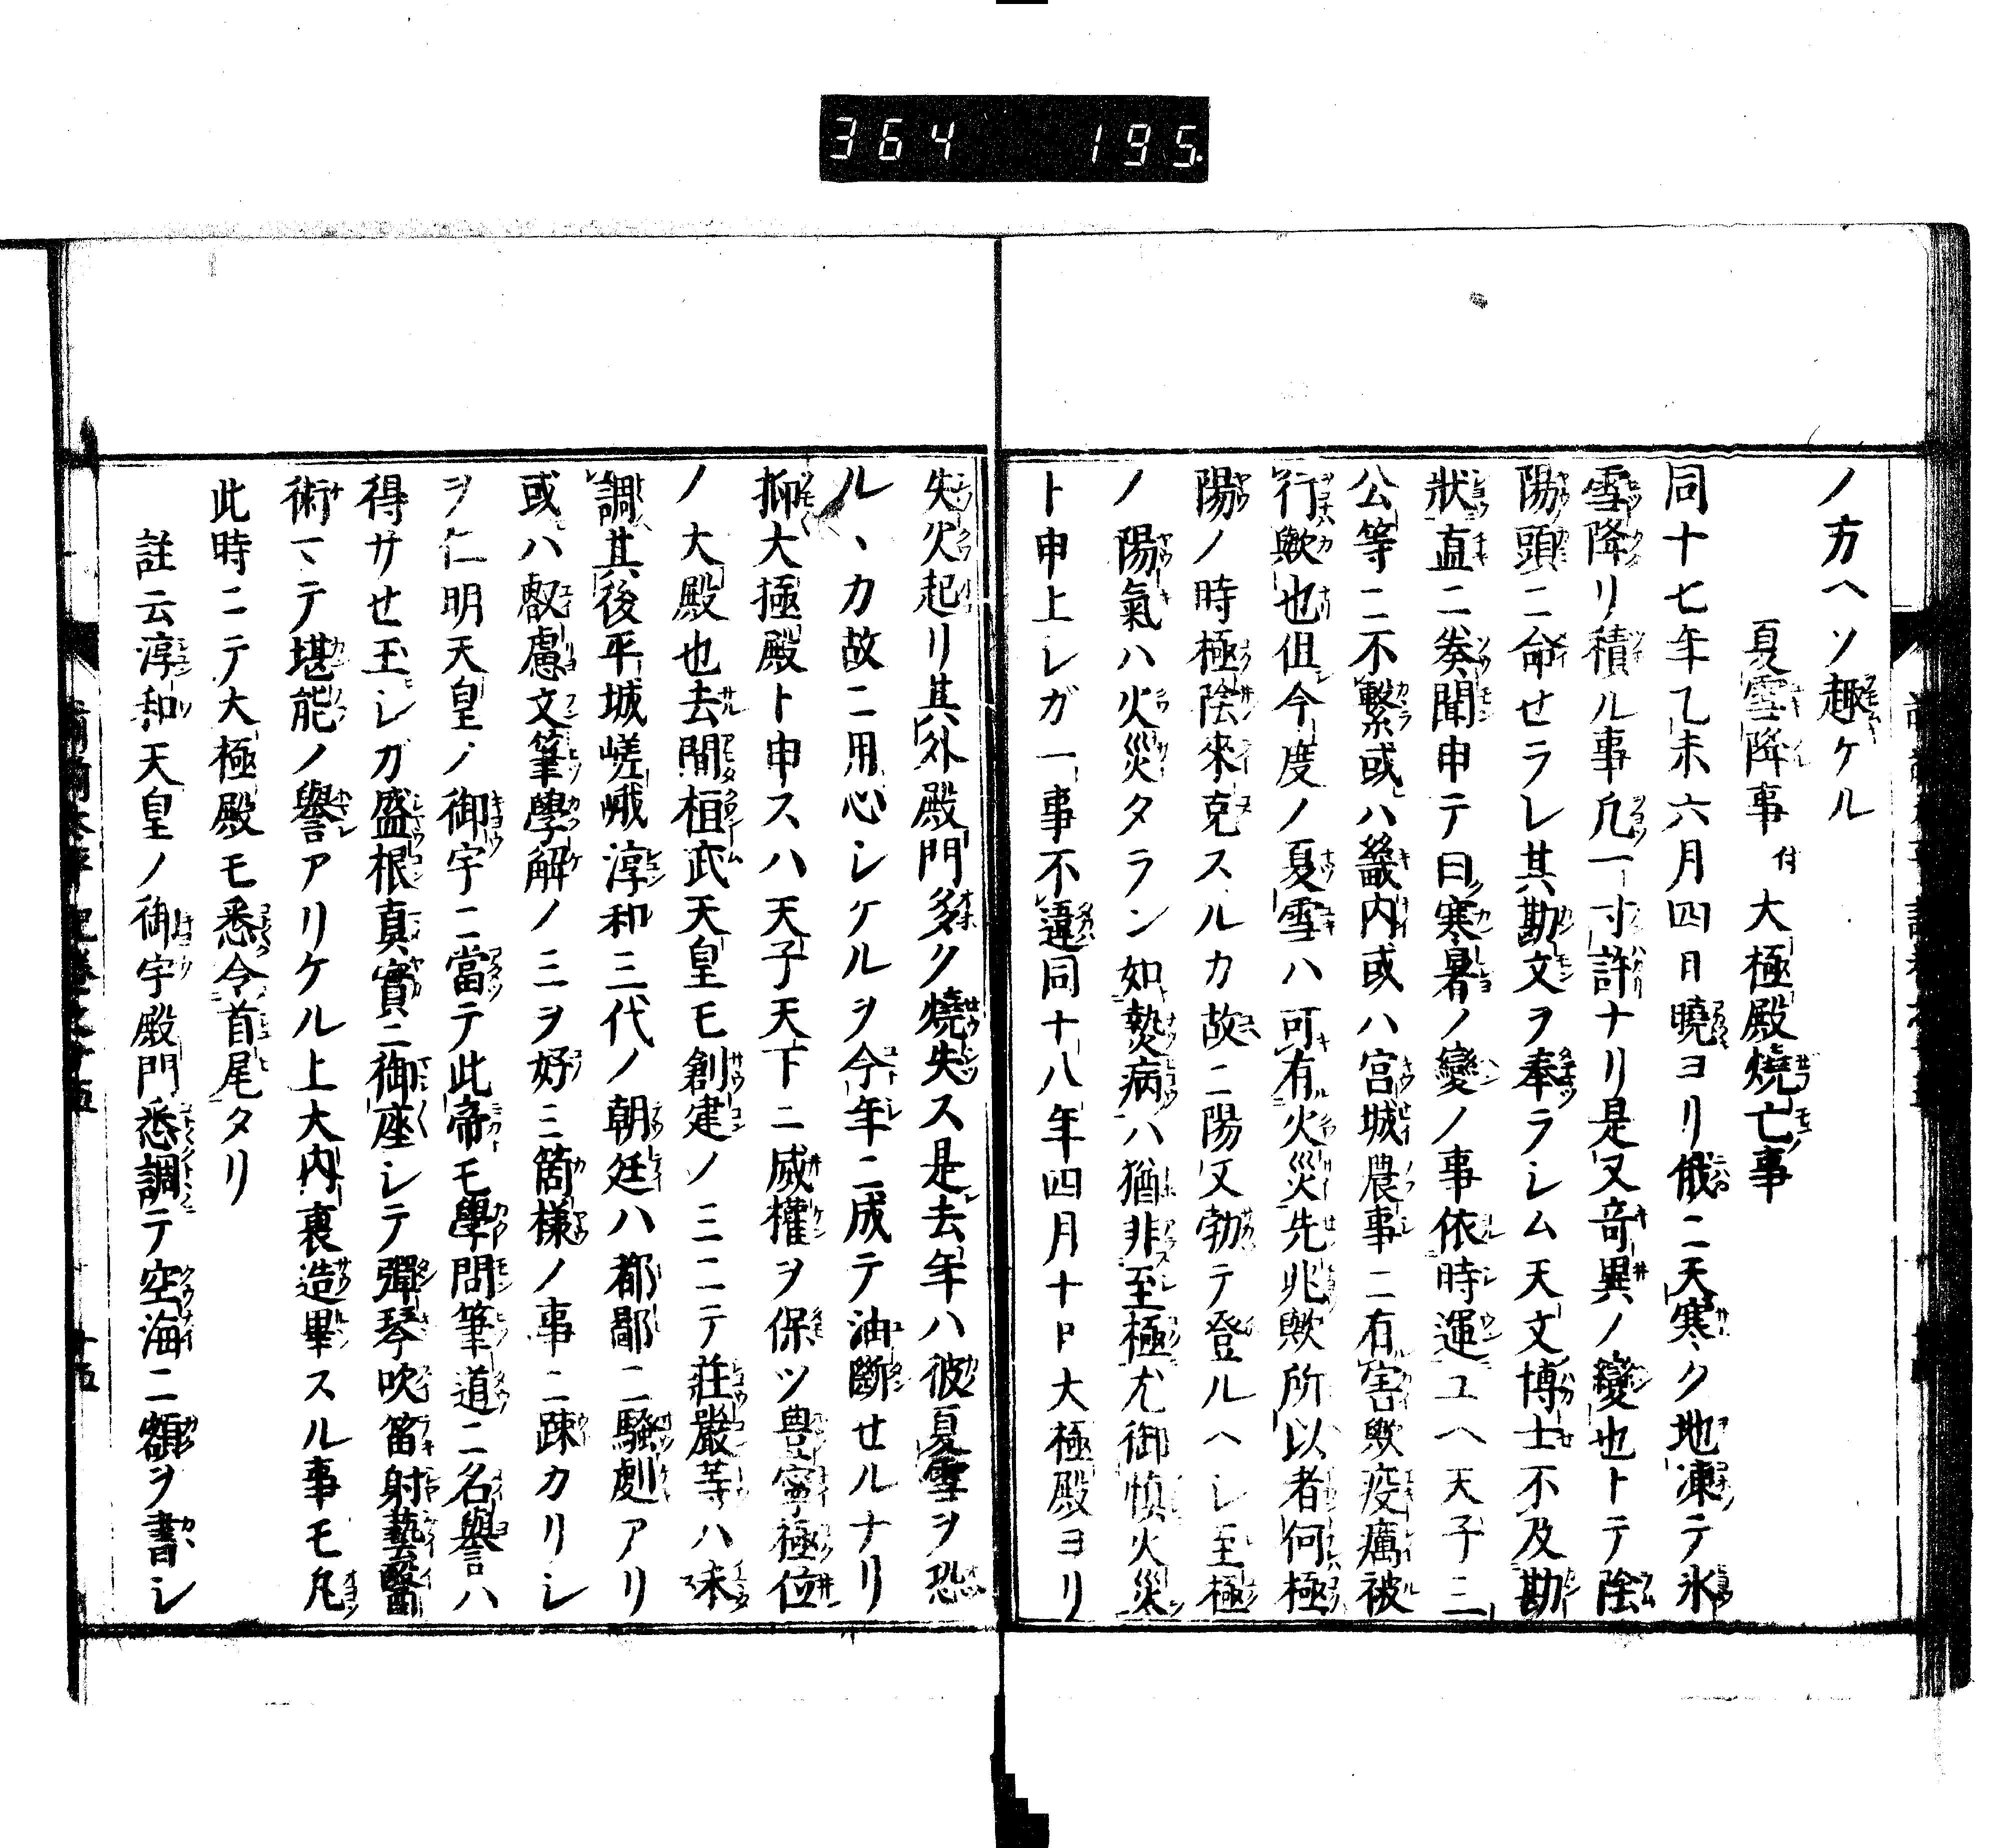 364 195.
ノ方ヘソ趣ケル
夏雪降事付大極殿燒亡事
同十七年乙未六月四日曉ヨリ俄ニ天寒ク地凍テ氷
雪降リ積ル事凡一寸許ナリ是又竒異ノ變也トテ陰
陽頭ニ命せラレ其勘文ヲ奉ラシム天文博士不及勘
狀直ニ奏聞申テ曰寒暑ノ變ノ事依時運ユヘ天子三
公等ニ不繫或ハ畿内或ハ宮城農事ニ有害歟疫癘被
行歟也但今度ノ夏雪ハ可有火災先兆歟所以者何極
陽ノ時極陰來克スルカ故ニ陽又勃テ登ルヘシ至極
ノ陽氣ハ火災タラン如𤍠病ハ猶非至極尤御愼火災
ト申上レガ一事不違同十八年四月十日大極殿ヨリ
失火起リ其外殿門多ク燒失ス是去年ハ彼夏雪ヲ恐
ルヽカ故ニ用心シケルヲ今年ニ成テ油斷せルナリ
抑大極殿ト申スハ天子天下ニ威權ヲ保ツ豊寧極位
ノ大殿也去間桓武天皇モ創建ノミニテ莊嚴等ハ未
調其後平城嵯峨淳和三代ノ朝廷ハ都鄙ニ騷劇アリ
或ハ叡慮文筆學解ノミヲ好ミ箇樣ノ事ニ踈カリシ
ヲ仁明天皇ノ御宇ニ當テ此帝モ學問筆道ニ名譽ハ
得サせ玉レガ盛根真實ニ御座シテ彈琴吹笛射藝醫
術マテ堪能ノ譽アリケル上大内裏造畢スル事モ凡
此時ニテ大極殿モ悉令首尾タリ
註云淳和天皇ノ御宇殿門悉調テ空海ニ額ヲ書シ
十五